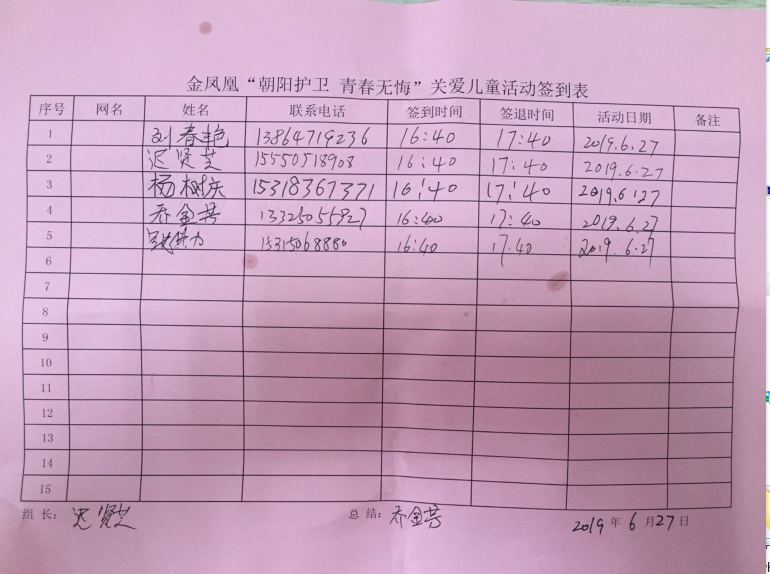 金凤凰“朝阳护卫 青春无悔”关爱儿童活动签到表
序号 网名 姓名 联系电话 签到时间 签退时间 活动日期 备注
1 刘春艳 13864719236 16:40 17:40 2019.6.27
2 迟贤芝 15550718908 16:40 17:40 2019.6.27
3 杨树庆 15318367371 16:40 17:40 2019.6.27
4 乔金芸 13325055927 16:40 17:40 2019.6.27
5 15315068880 16:40 17.40 2019.6.27
6
7
8
9
10
11
12
13
14
15
组 长: 迟贤芝 总 结: 乔金芸 2019 年 6 月 27 日